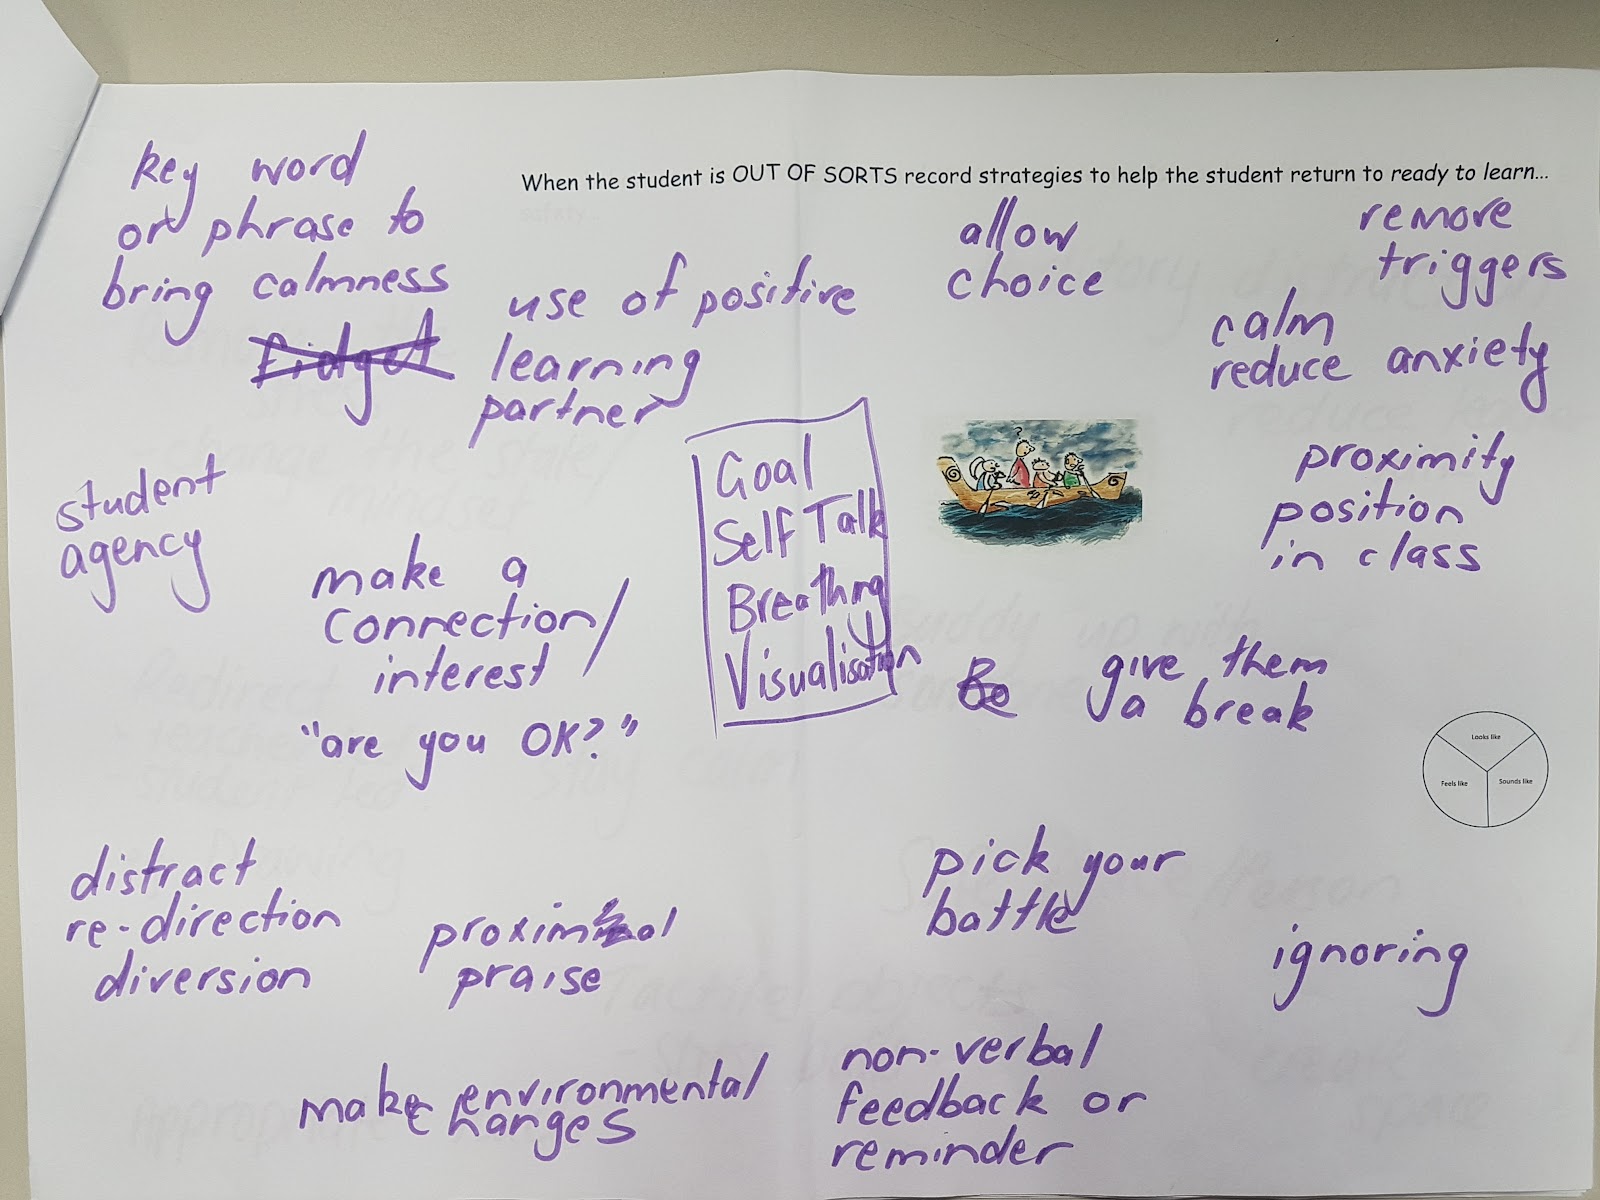 When the student is OUT OF SORTS record strategies to help the student return to ready to learn...
key word
or phrase to
bring calmness
fidget
use of positive
learning
partner
allow
choice
remove
triggers
calm
reduce anxiety
proximity
position
in class
student
agency
make a
connection/
interest
"are you OK?"
Goal
Self Talk
Breathing
Visualisation
Be
give them
a break
Looks like
Feels like
Sounds like
distract
re-direction
diversion
proximal
praise
pick your
battle
ignoring
make environmental
changes
non-verbal
feedback or
reminder